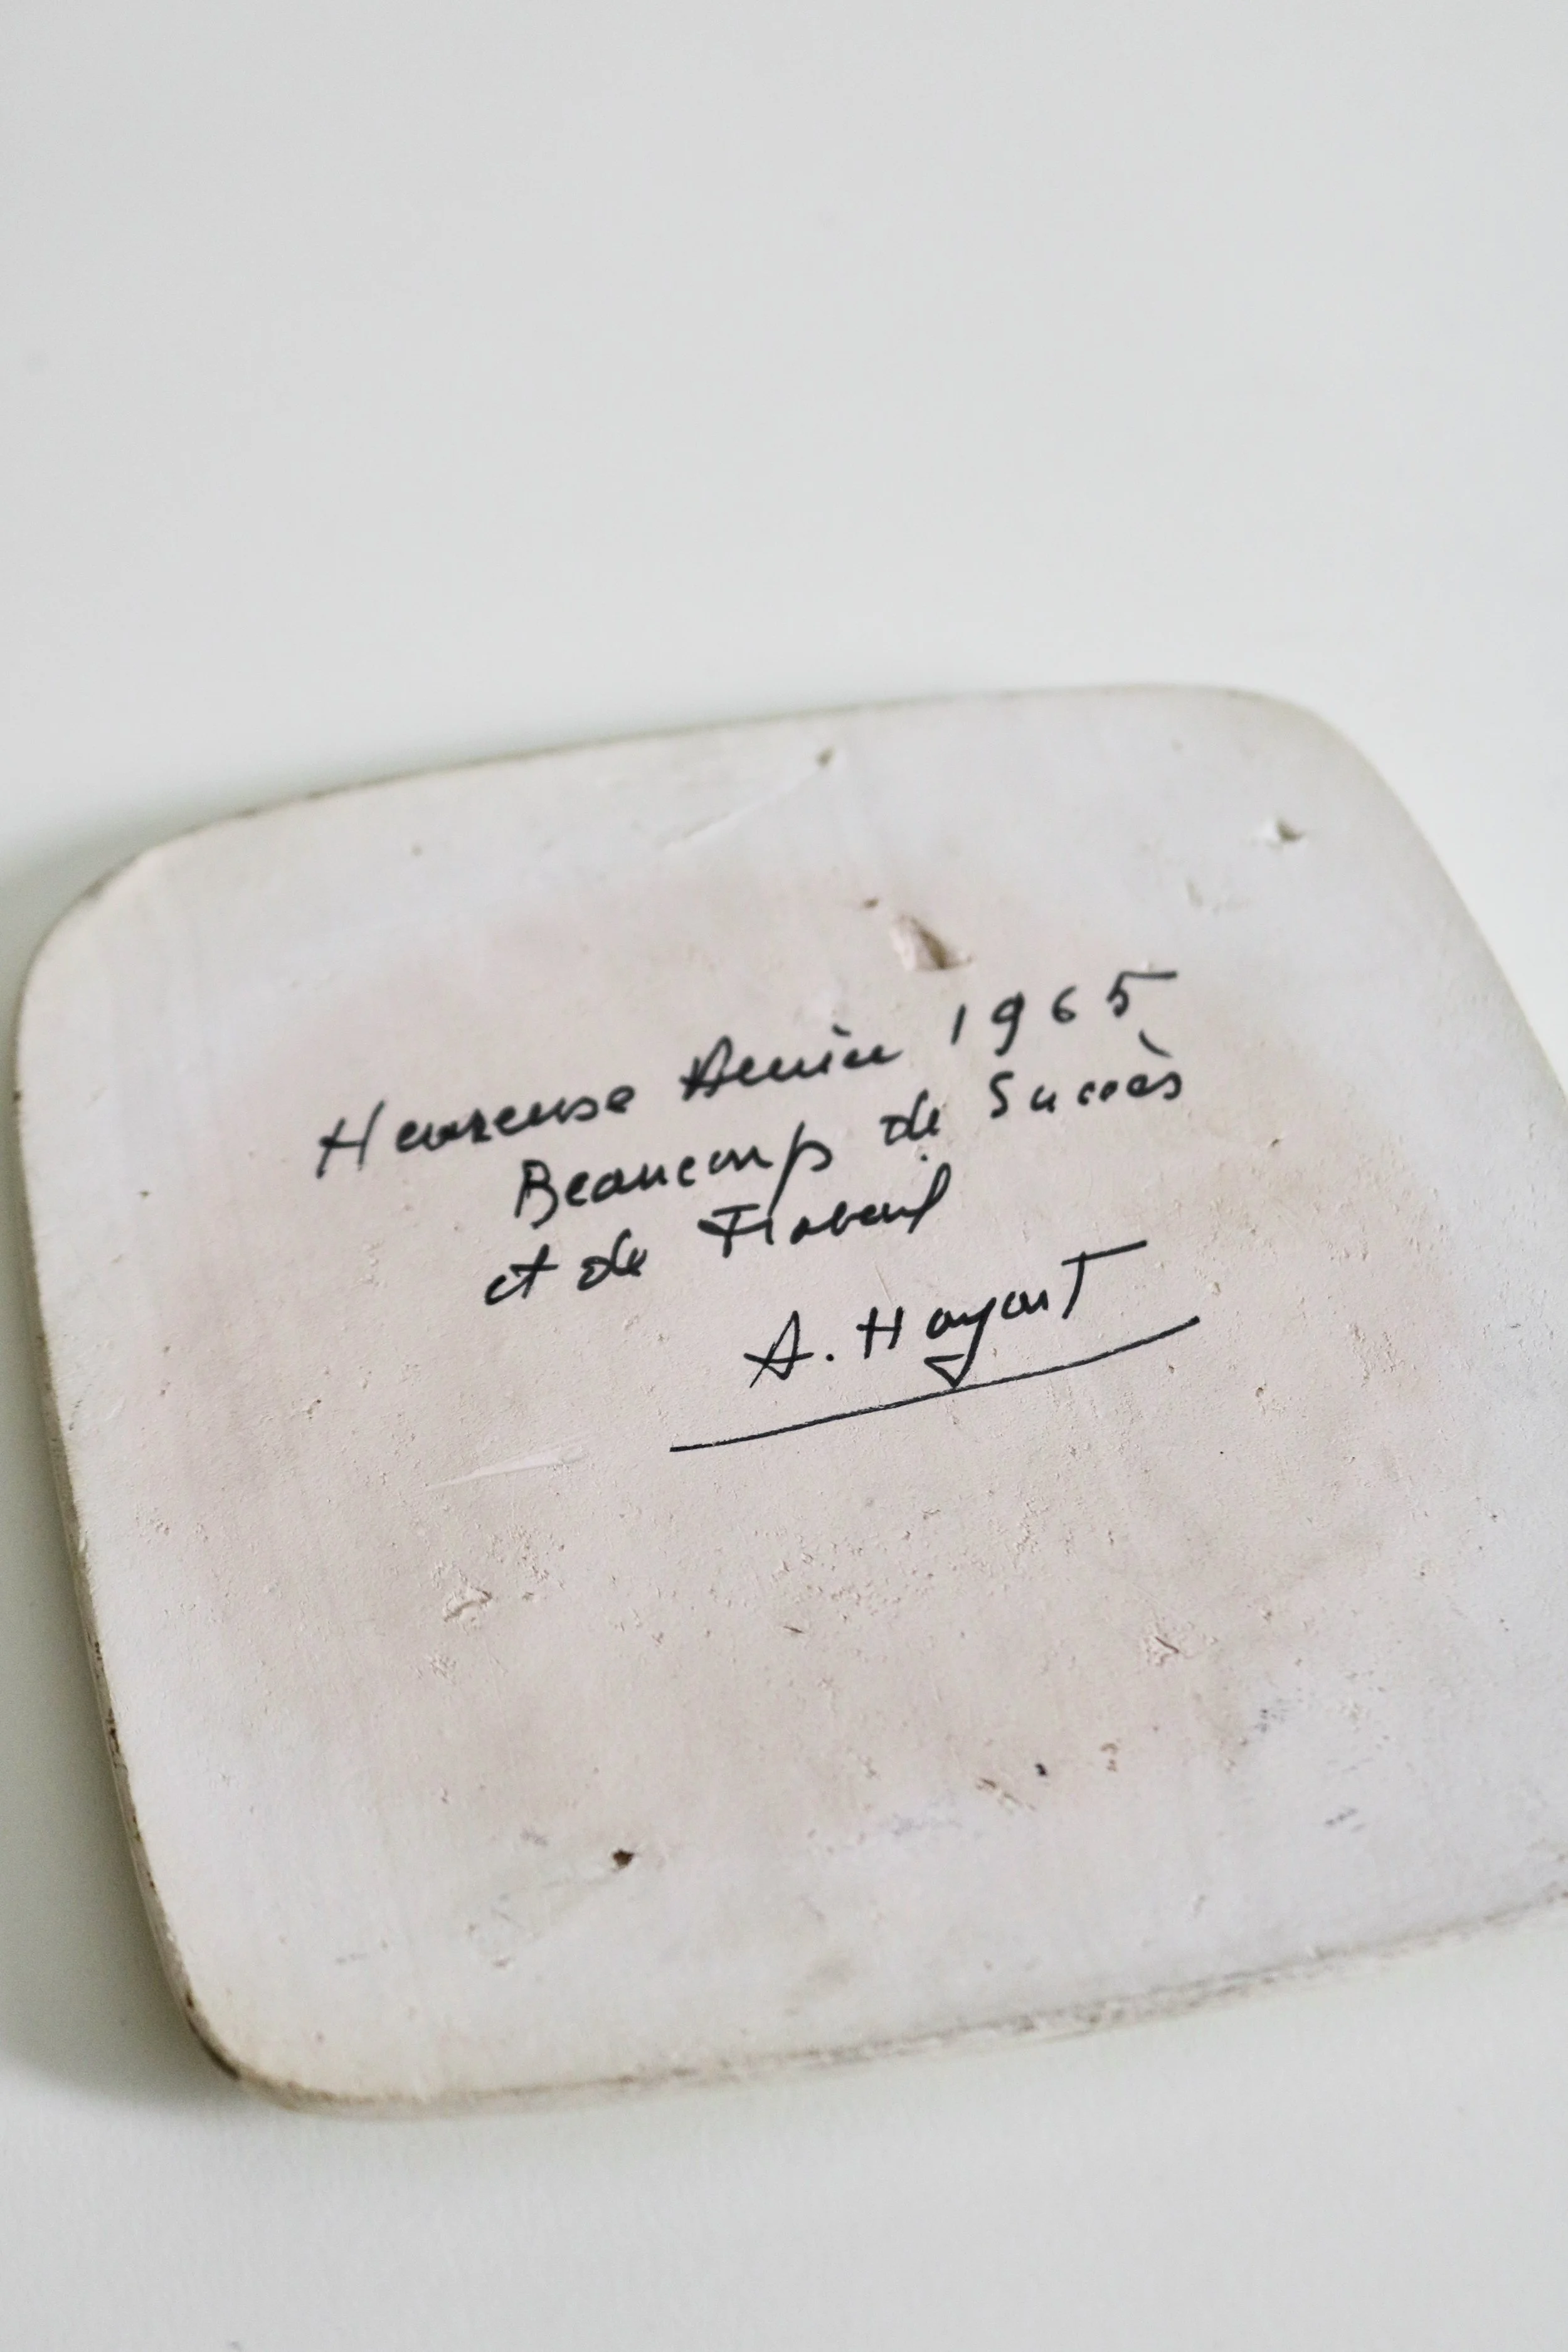 Heureuse Année 1965
Beaucoup de Succès
et de Travail
A. Hayart